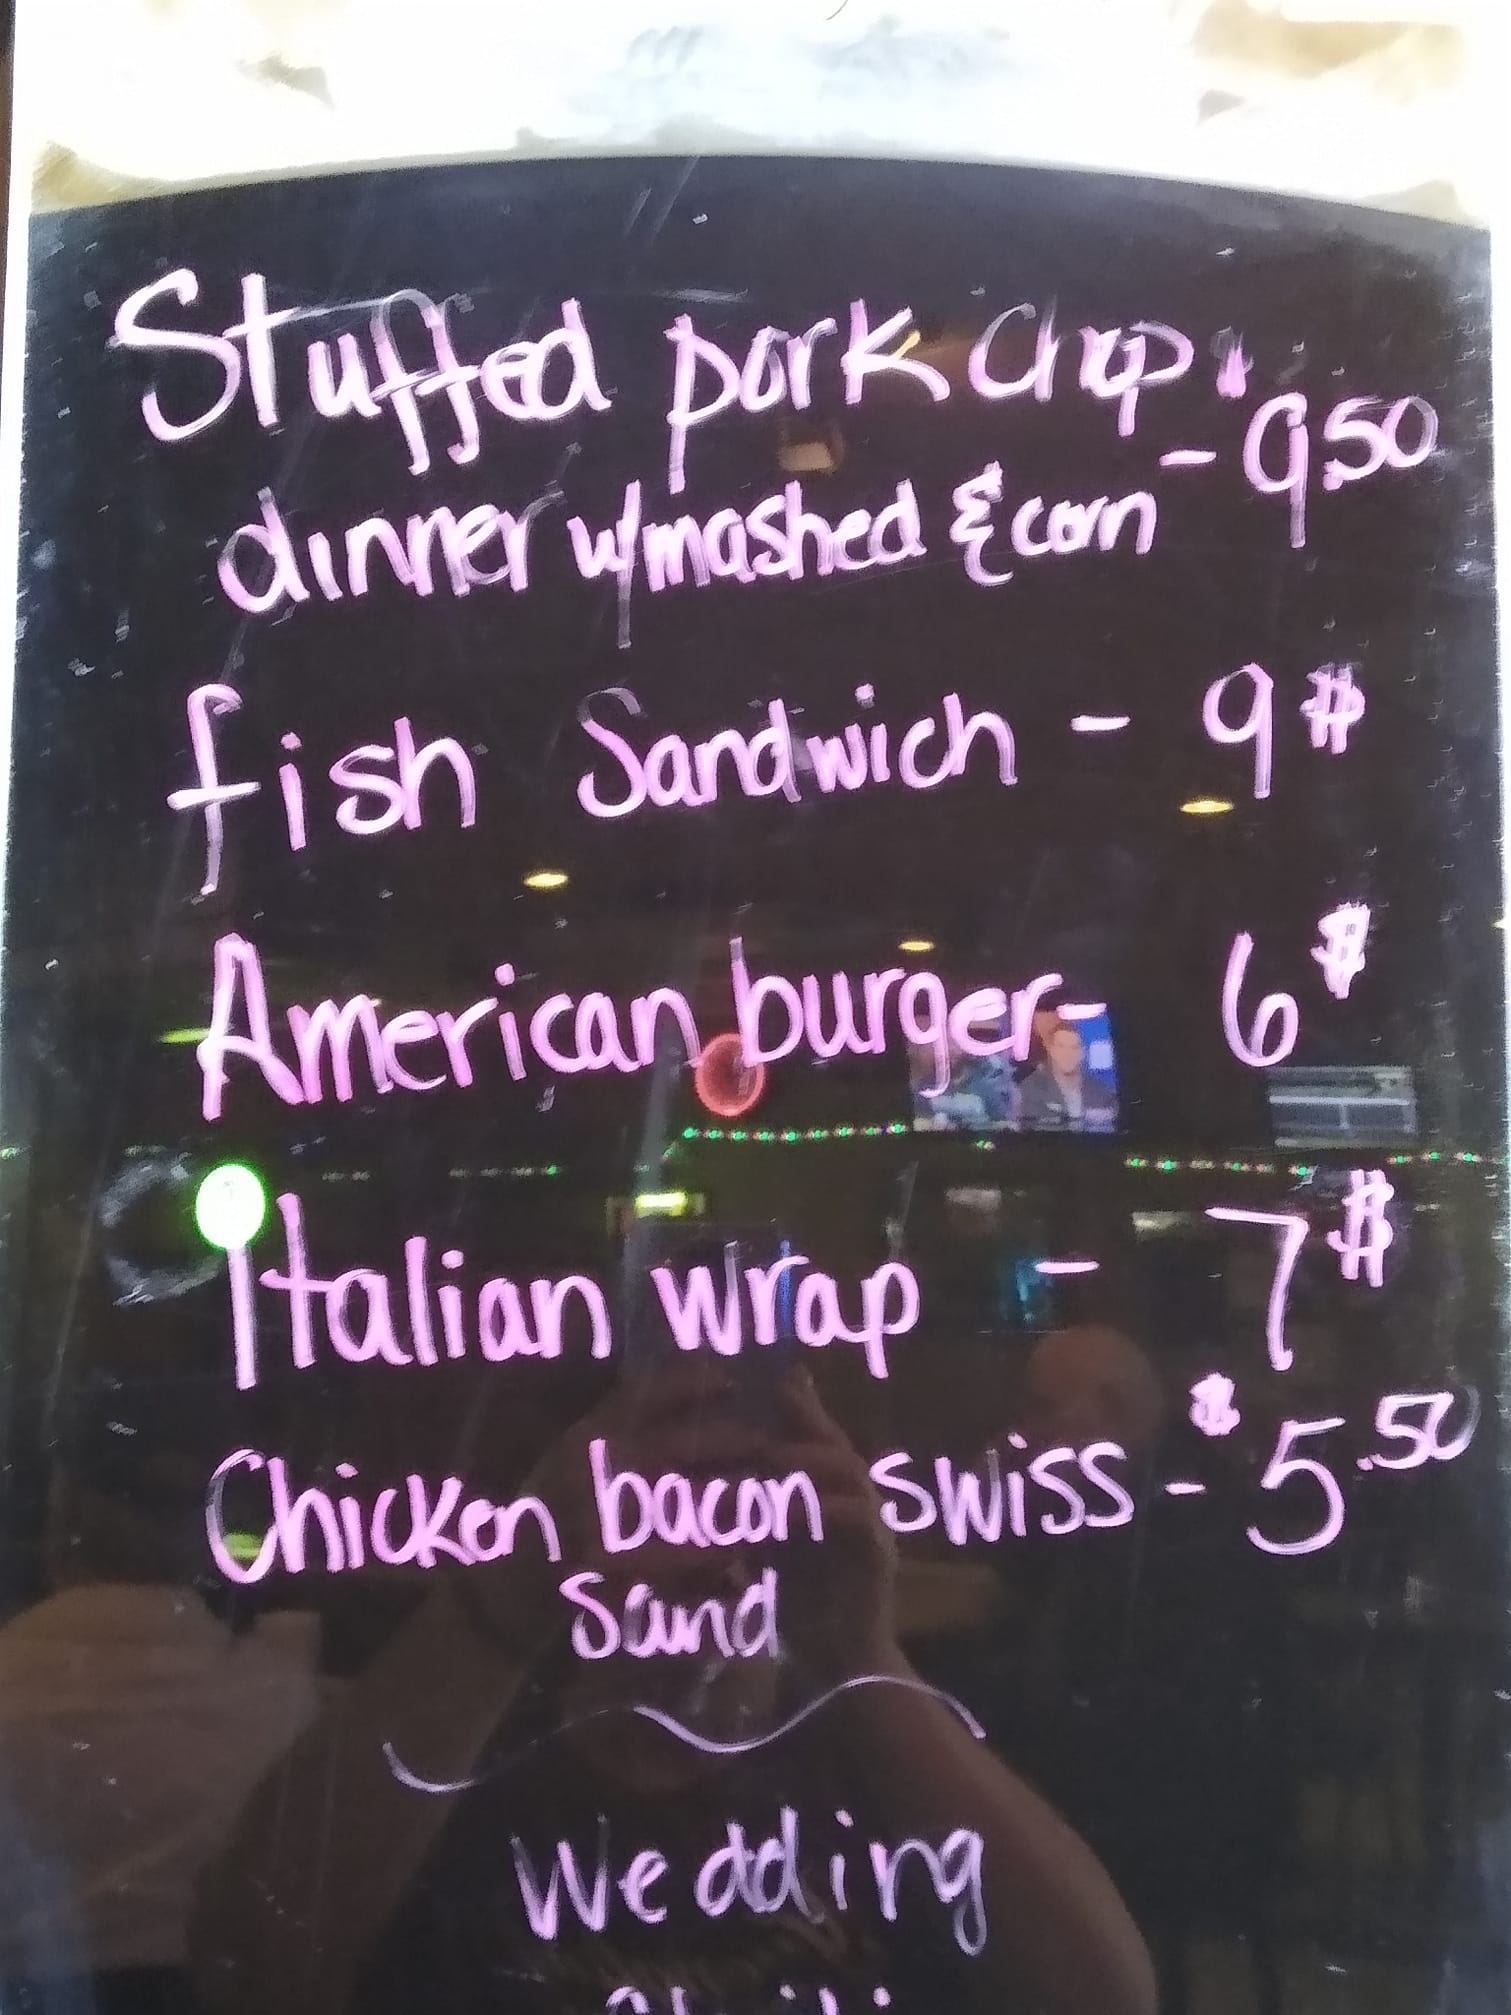 Stuffed pork chop
dinner w/mashed & corn - $9.50
fish Sandwich - 9$
American burger - 6$
Italian wrap - 7$
Chicken bacon swiss - $5.50
Sand
Wedding